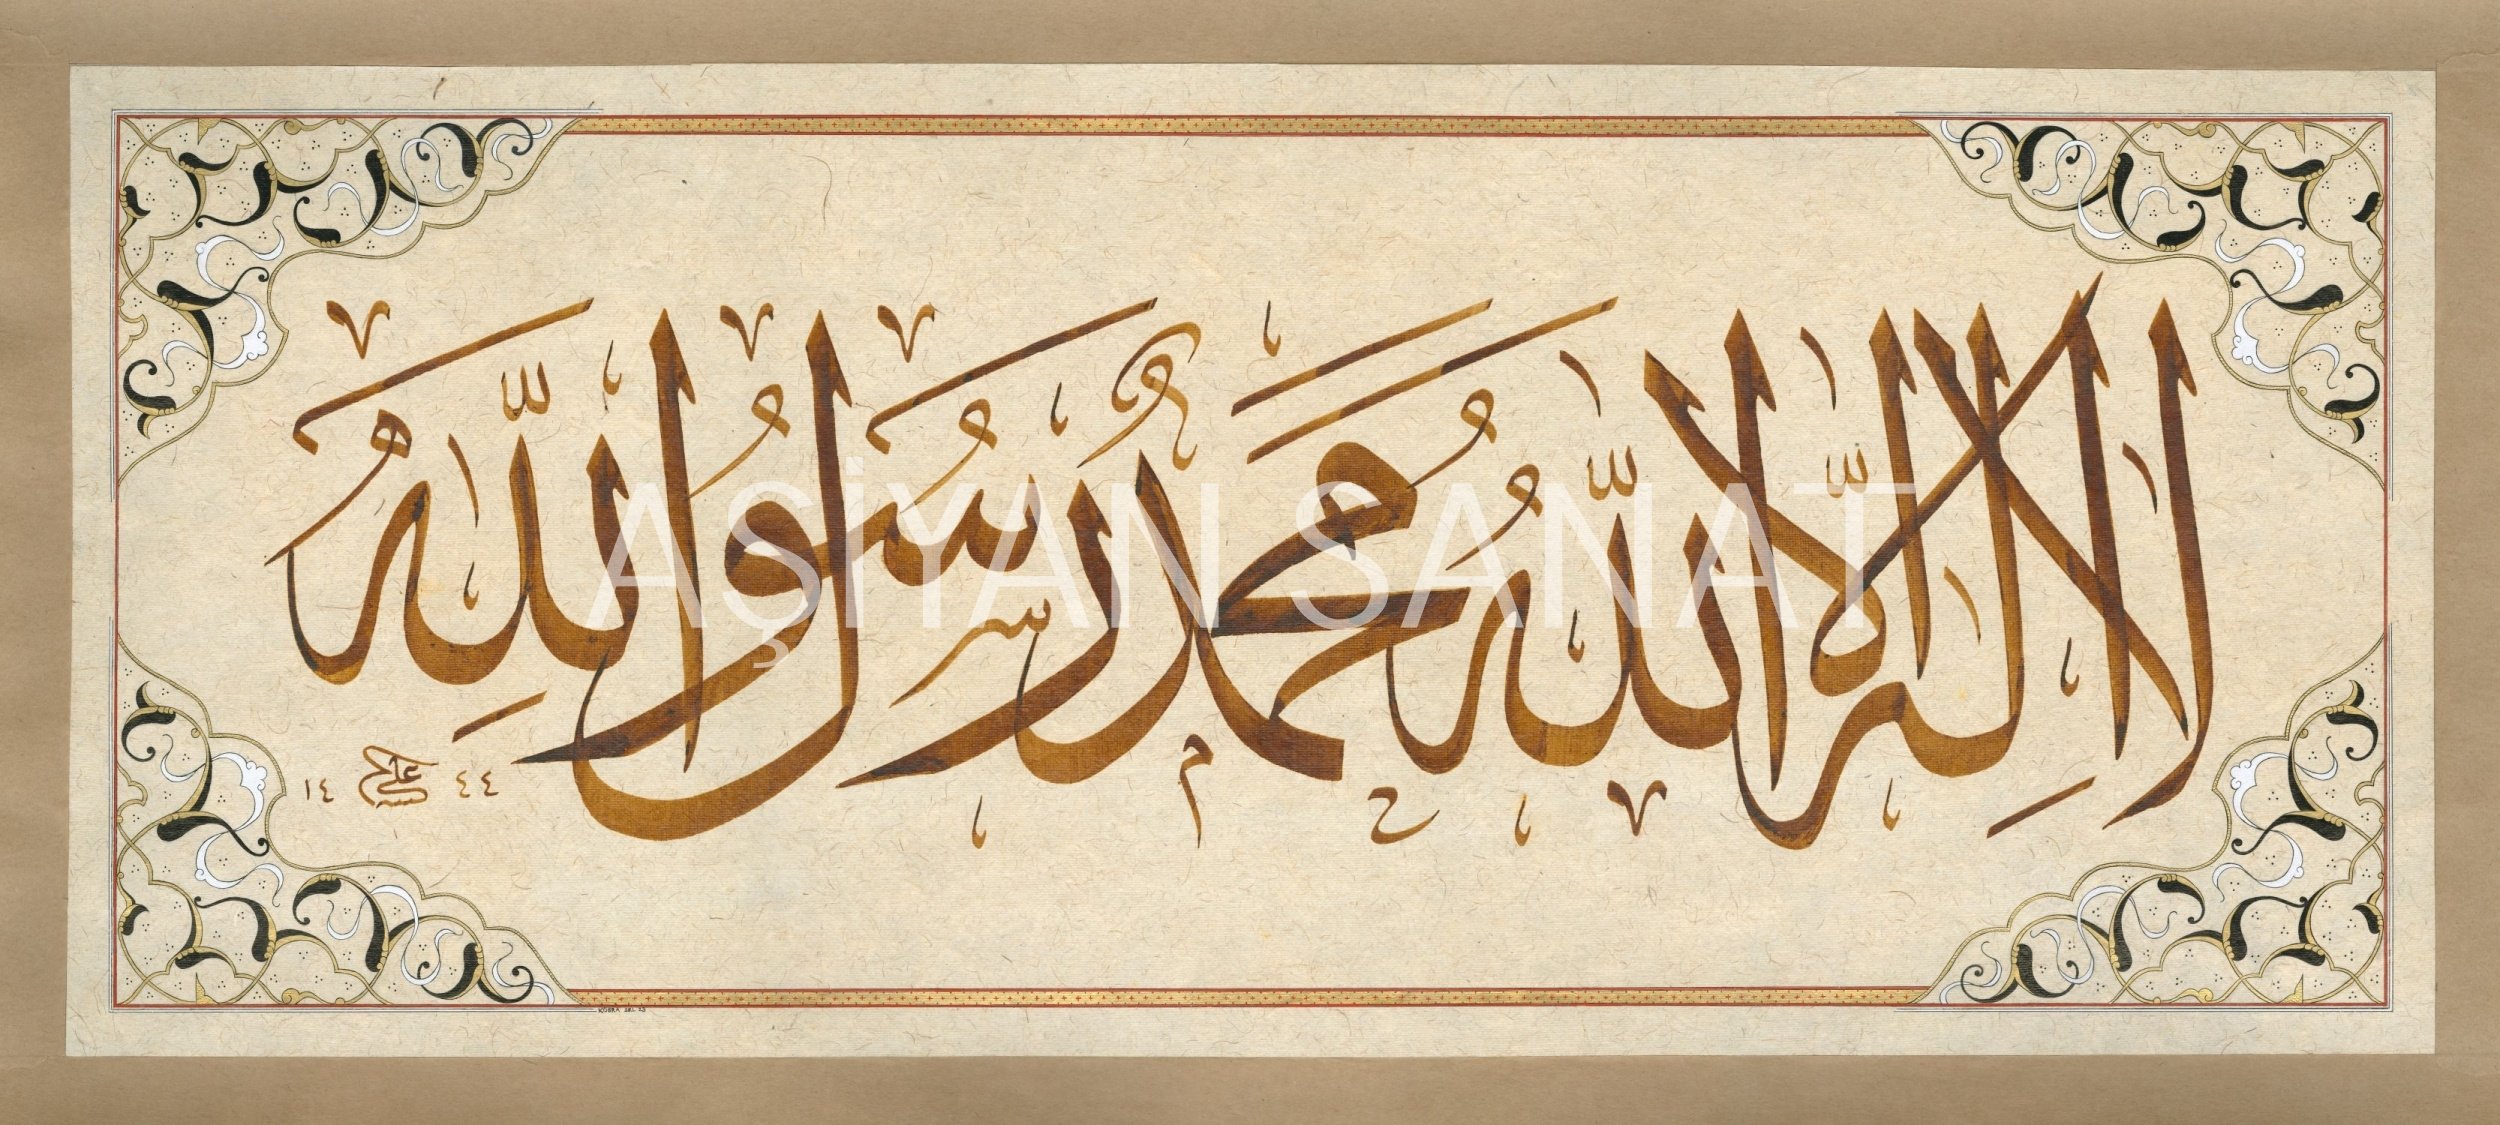 لَا إِلٰهَ إِلَّا اللّٰهُ مُحَمَّدٌ رَسُولُ اللّٰهِ
١٤ ٤٤
AŞİYAN SANAT